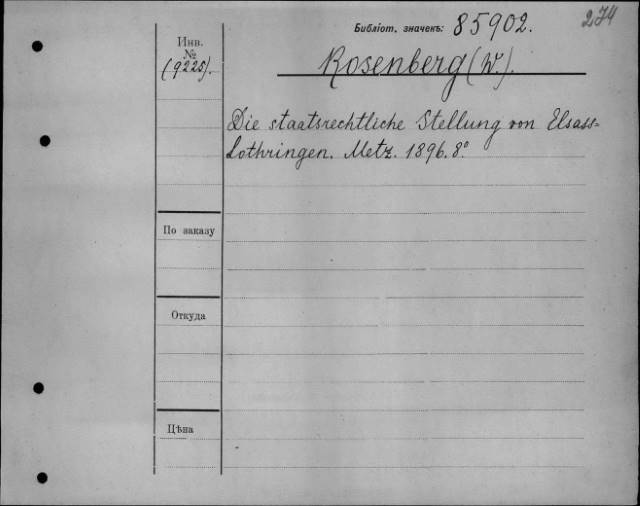 274
Библіот. значекъ: 85902.
Инв.
№
(9225).
Rosenberg (W.).
Die staatsrechtliche Stellung von Elsass-
Lothringen. Metz. 1896. 8°.
По заказу
Откуда
Цѣна